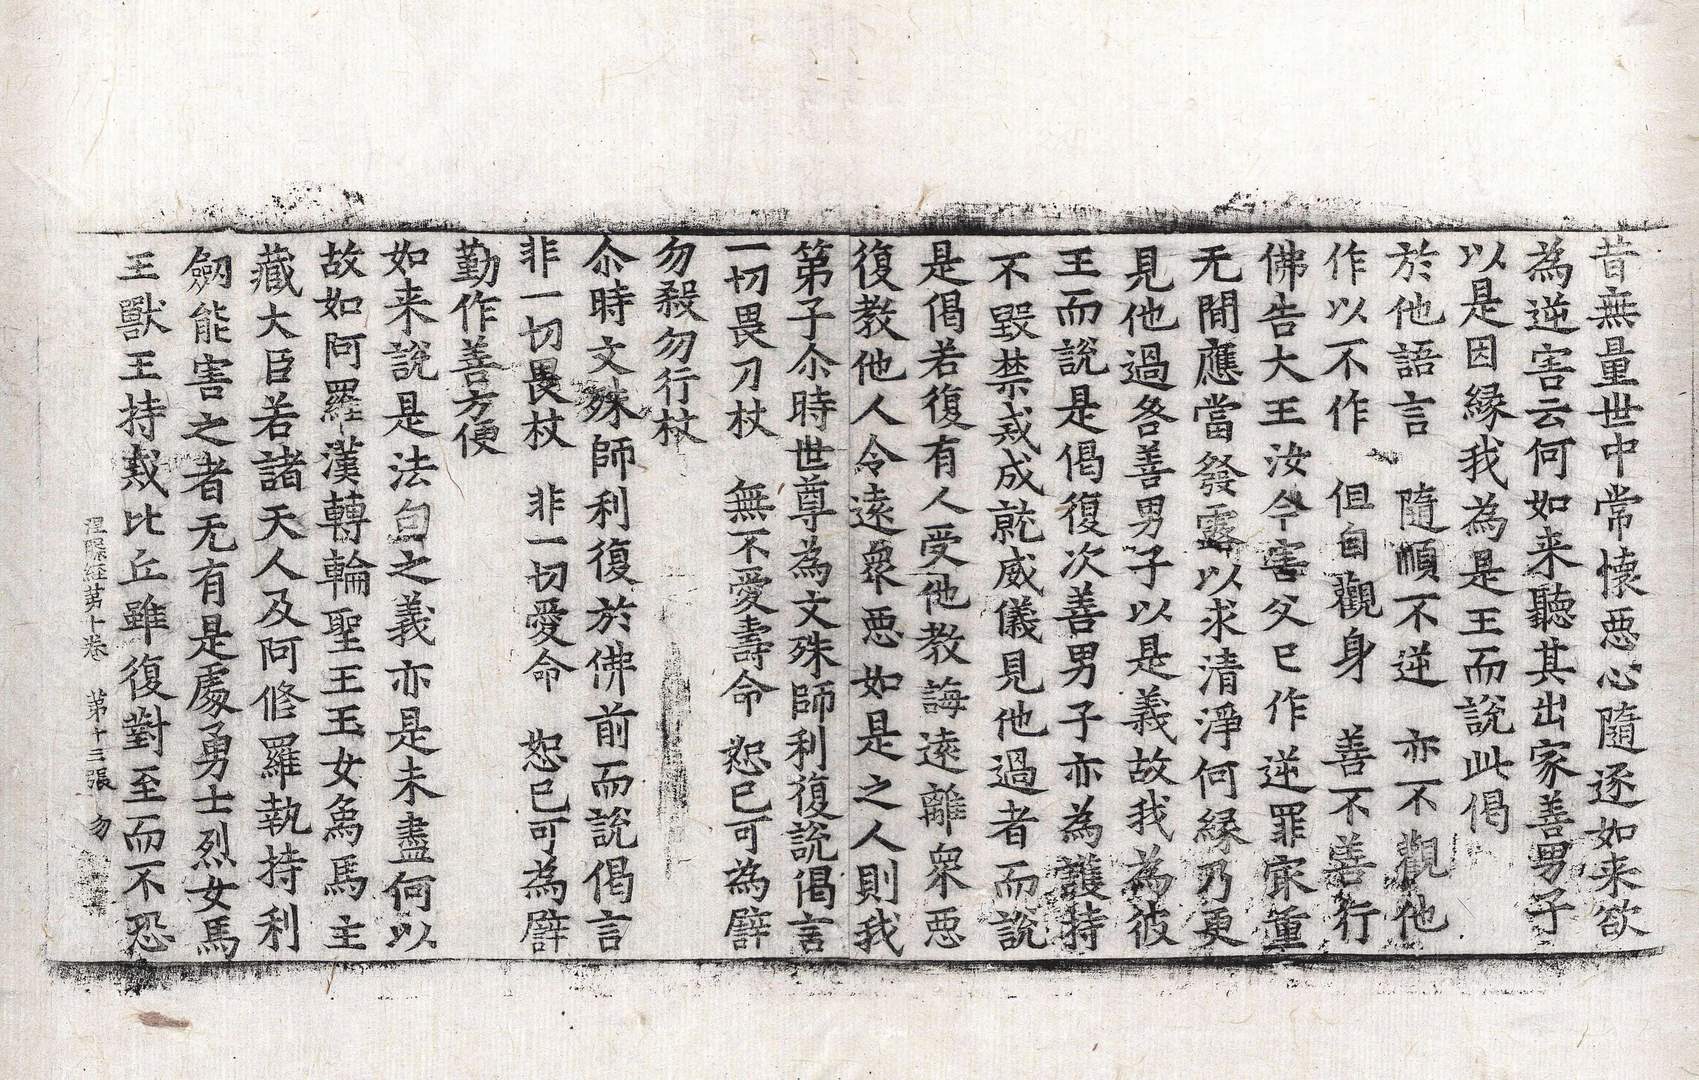 昔無量世中常懷惡心隨逐如来欲
為逆害云何如来聽其出家善男子
以是因縁我為是王而說此偈
於他語言　隨順不逆　亦不觀他
作以不作　但自觀身　善不善行
佛告大王汝今害父已作逆罪㝡重
无間應當發露以求清淨何縁乃更
見他過咎善男子以是義故我為彼
王而說是偈復次善男子亦為護持
不毀禁戒成就威儀見他過者而說
是偈若復有人受他教誨遠離衆惡
復教他人令遠衆惡如是之人則我
第子尒時世尊為文殊師利復說偈言
一切畏刀杖　無不愛壽命　恕已可為譬
勿殺勿行杖
尒時文殊師利復於佛前而說偈言
非一切畏杖　非一切愛命　恕已可為譬
勤作善方便
如来說是法句之義亦是未盡何以
故如阿羅漢轉輪聖王王女象馬主
藏大臣若諸天人及阿修羅執持利
劒能害之者无有是處勇士烈女馬
王獸王持戒比丘雖復對至而不恐
涅槃経第十卷　第十三張　勿